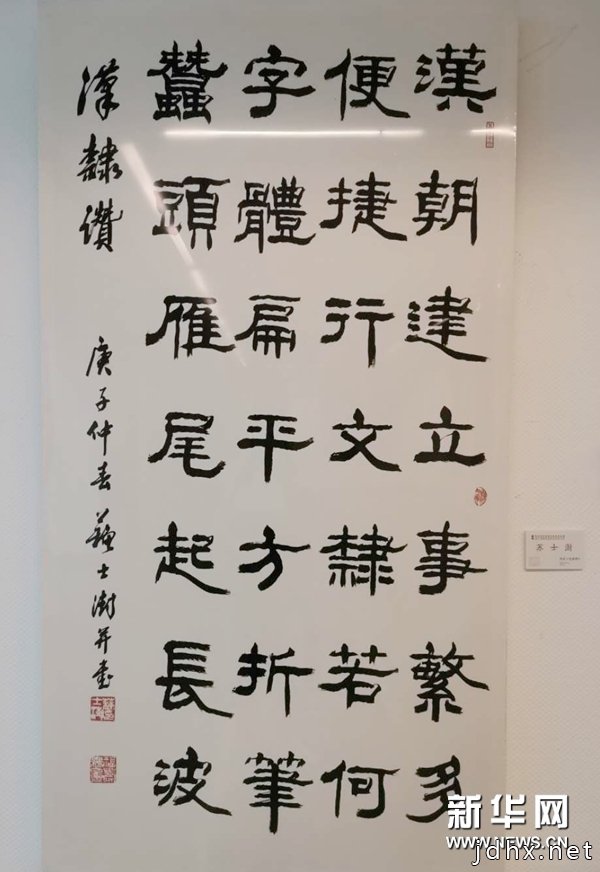 漢朝建立事繁多
便捷行文隸若何
字體扁平方折筆
蠶頭雁尾起長波
漢隸讚
庚子仲春蘇士澍并書
苏士澍
新华网
WWW.NEWS.CN
jdhx.net